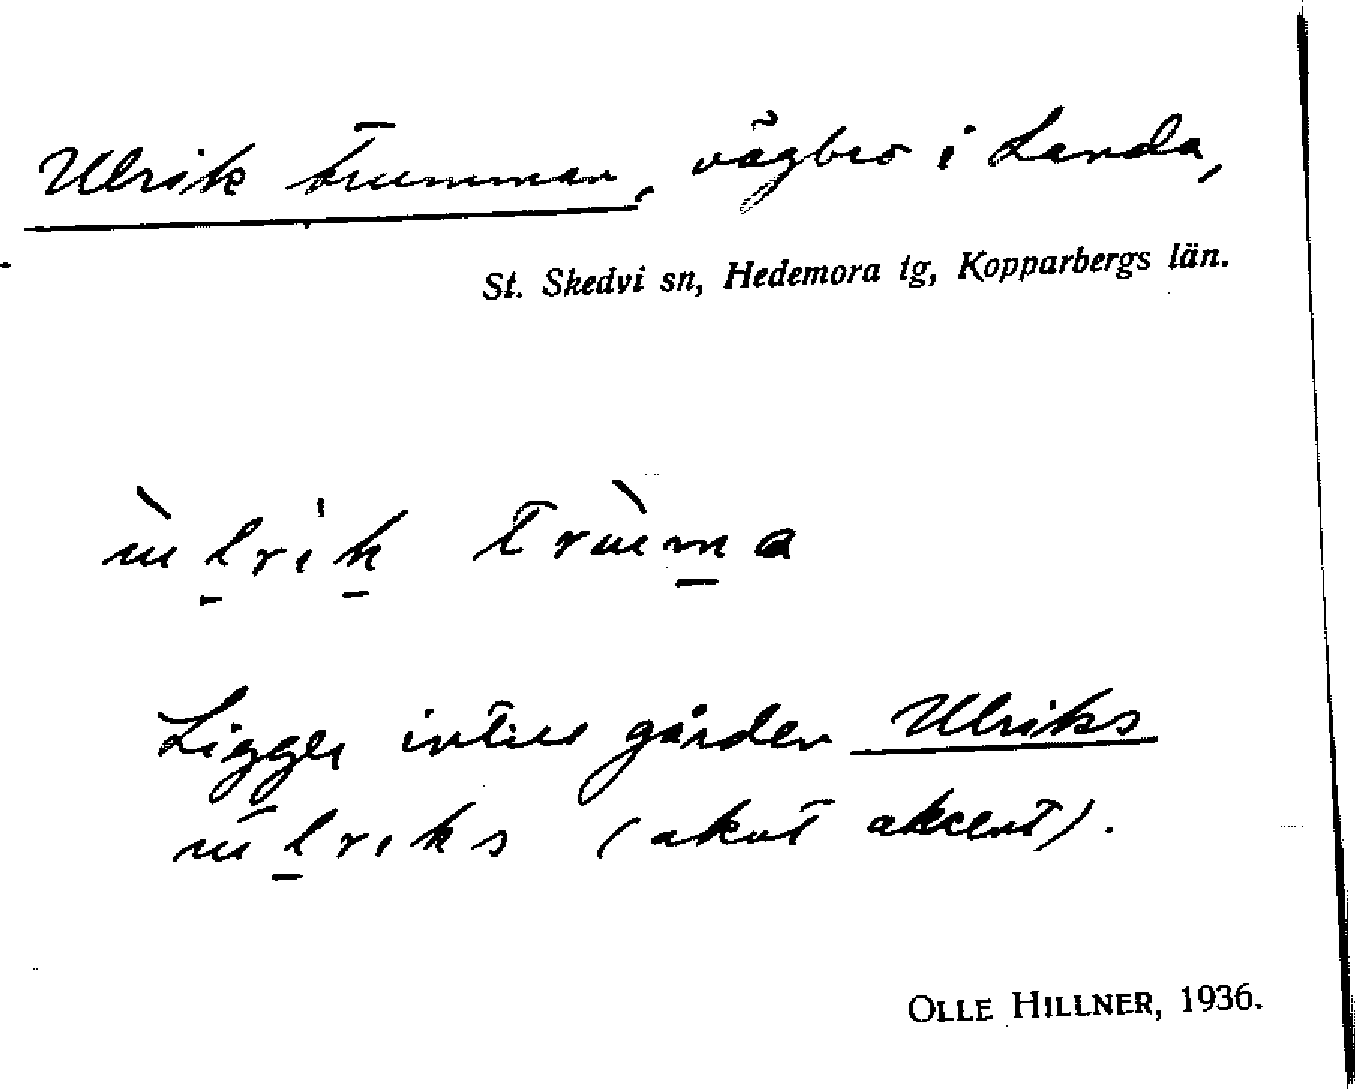 Ulrik trumman, vägbro i Landa,
St. Skedvi sn, Hedemora tg, Kopparbergs län.
ùlri'k trùma
Ligger intill gården Ulriks
úlriks (akut akcent).
OLLE HILLNER, 1936.